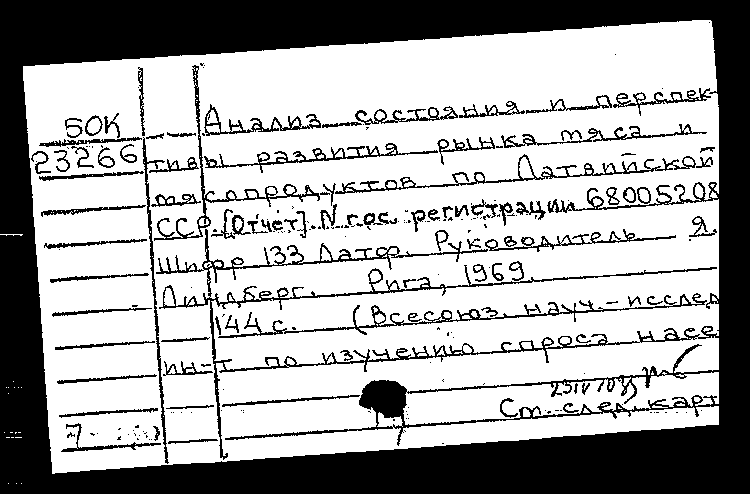 50К
23266
Анализ состояния и перспек-
тивы развития рынка мяса и
мясопродуктов по Латвийской
ССР. [Отчет]. N гос. регистрации 68005208
Шифр 133 Латф. Руководитель Я.
Линдберг. Рига, 1969.
144 с. (Всесоюз. науч.-исслед
ин-т по изучению спроса насе
См. след. карт